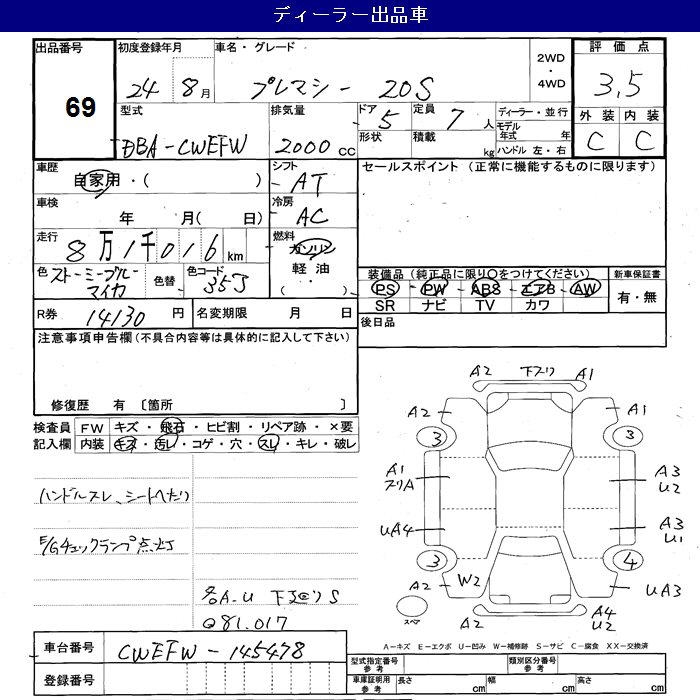 ディーラー出品車
出品番号
69
初度登録年月
24 8月
車名・グレード
プレマシー 20S
2WD
・
4WD
評価点
3.5
外装 内装
C C
型式
DBA-CWEFW
排気量
2000 cc
ドア
5
定員
7人
形状
積載
kg
ディーラー・並行
モデル年式 年
ハンドル 左・右
車歴
自家用・( )
シフト
AT
セールスポイント(正常に機能するものに限ります)
車検
年 月( 日)
冷房
AC
走行
8万1千016km
燃料
ガソリン
軽油
( )
色
ストーミーブルーマイカ
色替
色コード
35J
装備品(純正品に限り○をつけてください)
PS・PW・ABS・エアB・AW
SR ナビ TV カワ
新車保証書
有・無
R券
14130円
名変期限 月 日
後日品
注意事項申告欄(不具合内容等は具体的に記入して下さい)
修復歴 有 〔箇所 〕
検査員記入欄
FW キズ・飛石・ヒビ割・リペア跡・×要
内装 キズ・汚レ・コゲ・穴・スレ・キレ・破レ
ハンドルスレ、シートヘたり
E/Gチェックランプ点灯
各A.U 下廻りS
Q81.017
A2 下スリ A1
A2 A1
3 3
A1
スリA
A3
U2
UA4
A3
U1
3 4
A2 W2 UA3
スペア
A2
A4
U2
A-キズ E-エクボ U-凹み W-補修跡 S-サビ C-腐食 XX-交換済
車台番号
CWEFW-145478
登録番号
型式指定番号
参考
類別区分番号
参考
車庫証明用
参考
長さ cm
幅 cm
高さ cm